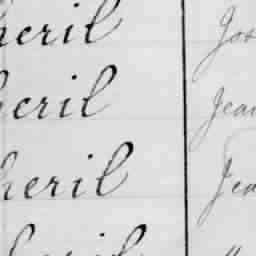 heril Jos
heril Jean
heril Jea
heril